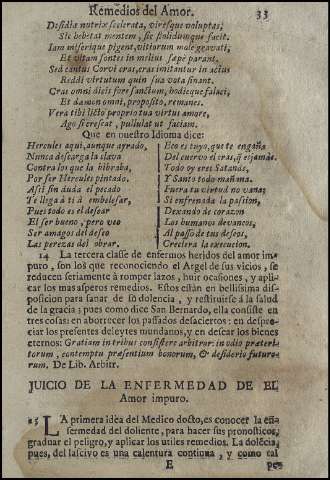 Remedios del Amor. 33
Desidia nutrix scelerata, viresque voluptas;
Sic bebetat mentem, sic solidumque facit.
Iam miserique pigent, vitiorum mole gravati,
Et vitam sontes in melius sape parant.
Sed cantus Corvi cras, cras imitantur in actus
Reddi virtutum quin sua vota sinant.
Cras omni dicis fore sanctum, hodieque falaci,
Et damen omni, proposito, remanes.
Vera tibi licto proprio tua virtus amore,
Ago si crescat, pullulat ut faciam.
Que en nuestro Idioma dice:
Hercules aqui, aunque ayrado,
Nunca descarga la clava
Contra los que la bibraba,
Por ser Hercules pintado.
Assi sin duda el pecado
Te llega à ti à embelesar,
Pues todo es el desear
El ser bueno, pero veo
Ser amagos del deseo
Las perezas del obrar.
Eco es tuyo, que te engaña
Del cuervo el cras, si esjamàs.
Todo oy eres Satanàs,
Y Santo todo mañana.
Fuera tu virtud no vana;
Si enfrenada la passion,
Dexando de corazon
Los humanos devancos,
Al passo de tus deseos,
Creciera la execucion.
14 La tercera classe de enfermos heridos del amor im-
puro, son los que reconociendo el Argel de sus vicios, se
reducen seriamente à romper lazos, huir ocasiones, y apli-
car los mas asperos remedios. Estos están en bellissima dis-
posicion para sanar de su dolencia, y restituirse à la salud
de la gracia; pues como dice San Bernardo, ella consiste en
tres cosas: en aborrecer los passados desaciertos: en despre-
ciar los presentes deleytes mundanos, y en desear los bienes
eternos: Gratiam in tribus consistere arbitror: in odio praeteri-
torum, contemptu praesentium bonorum, & desiderio futuro-
rum. De Lib. Arbitr.
JUICIO DE LA ENFERMEDAD DE EL
Amor impuro.
15 LA primera idèa del Medico docto, es conocer la en-
fermedad del doliente, para hacer sus pronosticos,
graduar el peligro, y aplicar los utiles remedios. La dolencia,
pues, del lascivo es una calentura continua, y como tal
E pos